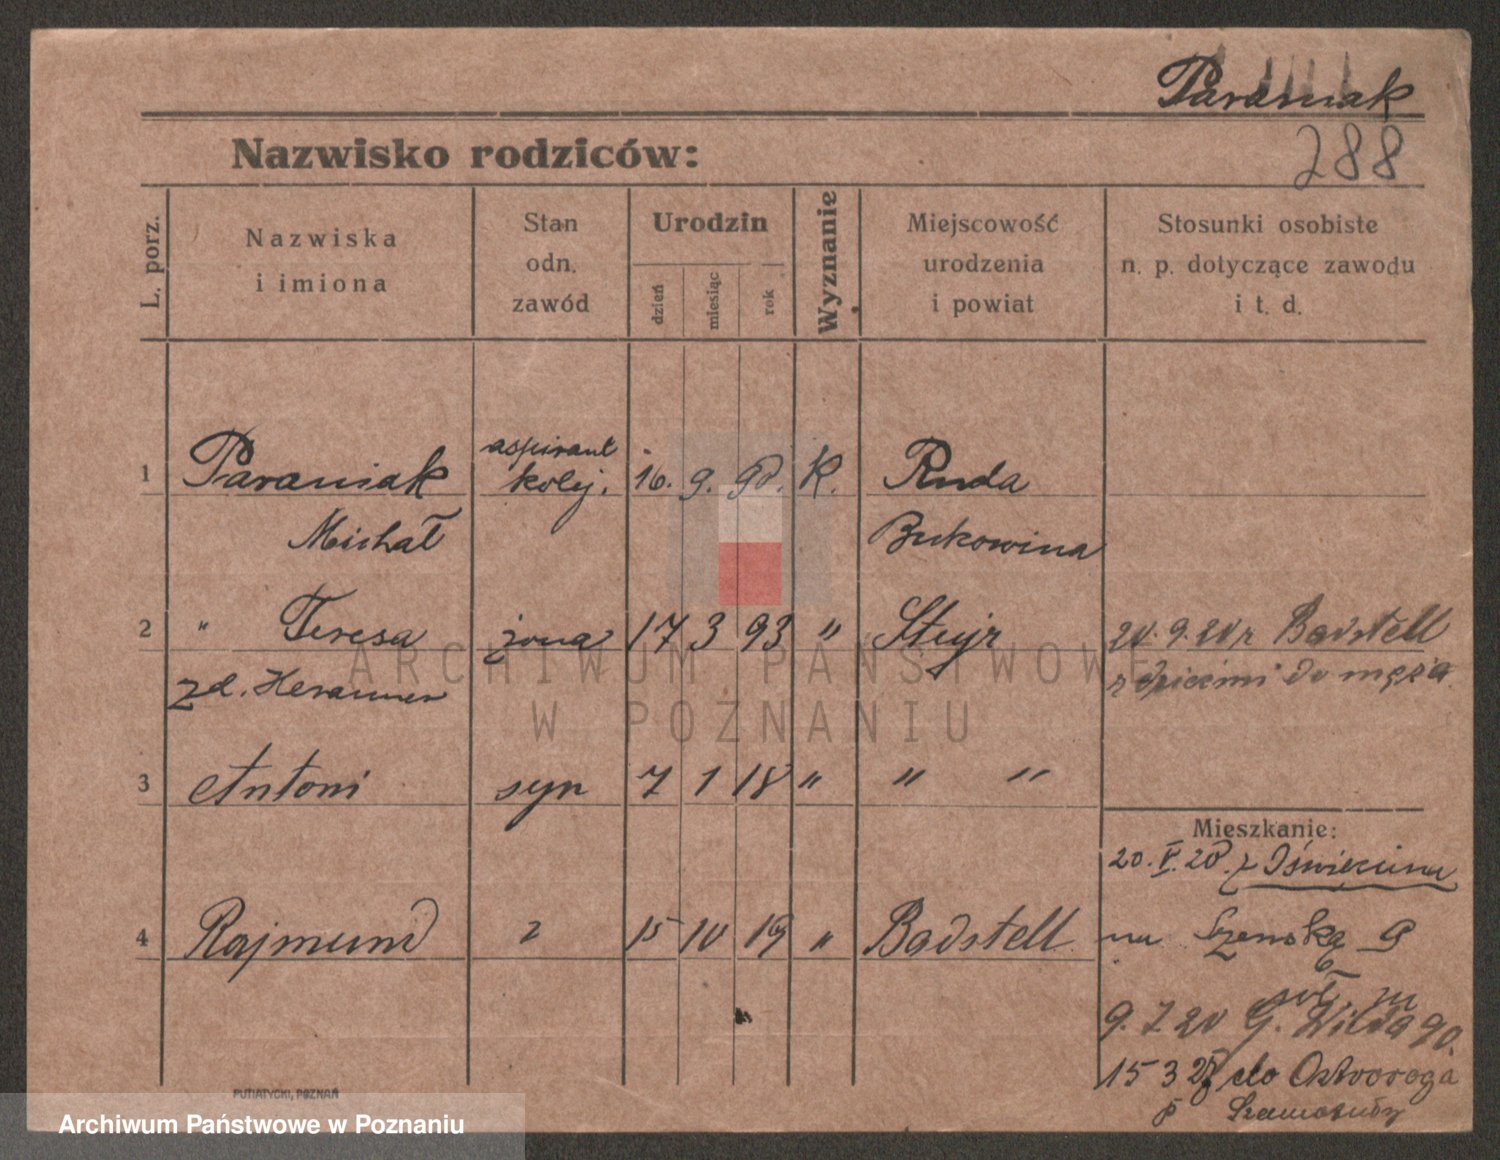 Paraniak
288
Nazwisko rodziców:
L. porz.
Nazwiska
i imiona
Stan
odn.
zawód
Urodzin
dzień
miesiąc
rok
Wyznanie
Miejscowość
urodzenia
i powiat
Stosunki osobiste
n. p. dotyczące zawodu
i t. d.
1 Paraniak aspirant kolej. 16. 9. 90. K. Ruda
Michał Bukowina
2 " Teresa żona 17 3 93 " Steyr 20. 9. 20 z Badstell
zd. Heranner z dziećmi do męża
3 Antoni syn 7 1 18 " " "
Mieszkanie:
20. V. 20. z Oświęcimu
4 Rajmund 15 10 19 " Badstell na
9. 7 20 G. Wilda 90.
15 3 do Ostroroga
p Szamotuły
PUTIATYCKI, POZNAŃ
ARCHIWUM PAŃSTWOWE
W POZNANIU
Archiwum Państwowe w Poznaniu